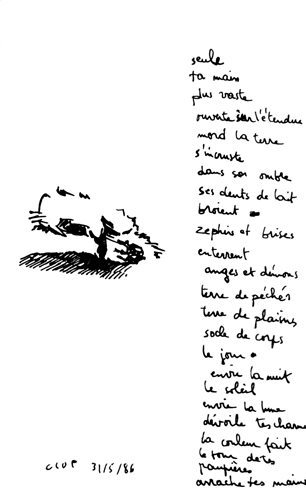 seule
ta main
plus vaste
ouverte sur l'étendue
mord la terre
s'incruste
dans son ombre
ses dents de lait
broient
zephirs et brises
enterrent
anges et démons
terre de péchés
terre de plaisirs
socle de corps
le jour
envie la nuit
le soleil
envie la lune
dévoile tes charmes
la couleur fait
le tour de tes
paupières
arrache tes mains
31/5/86